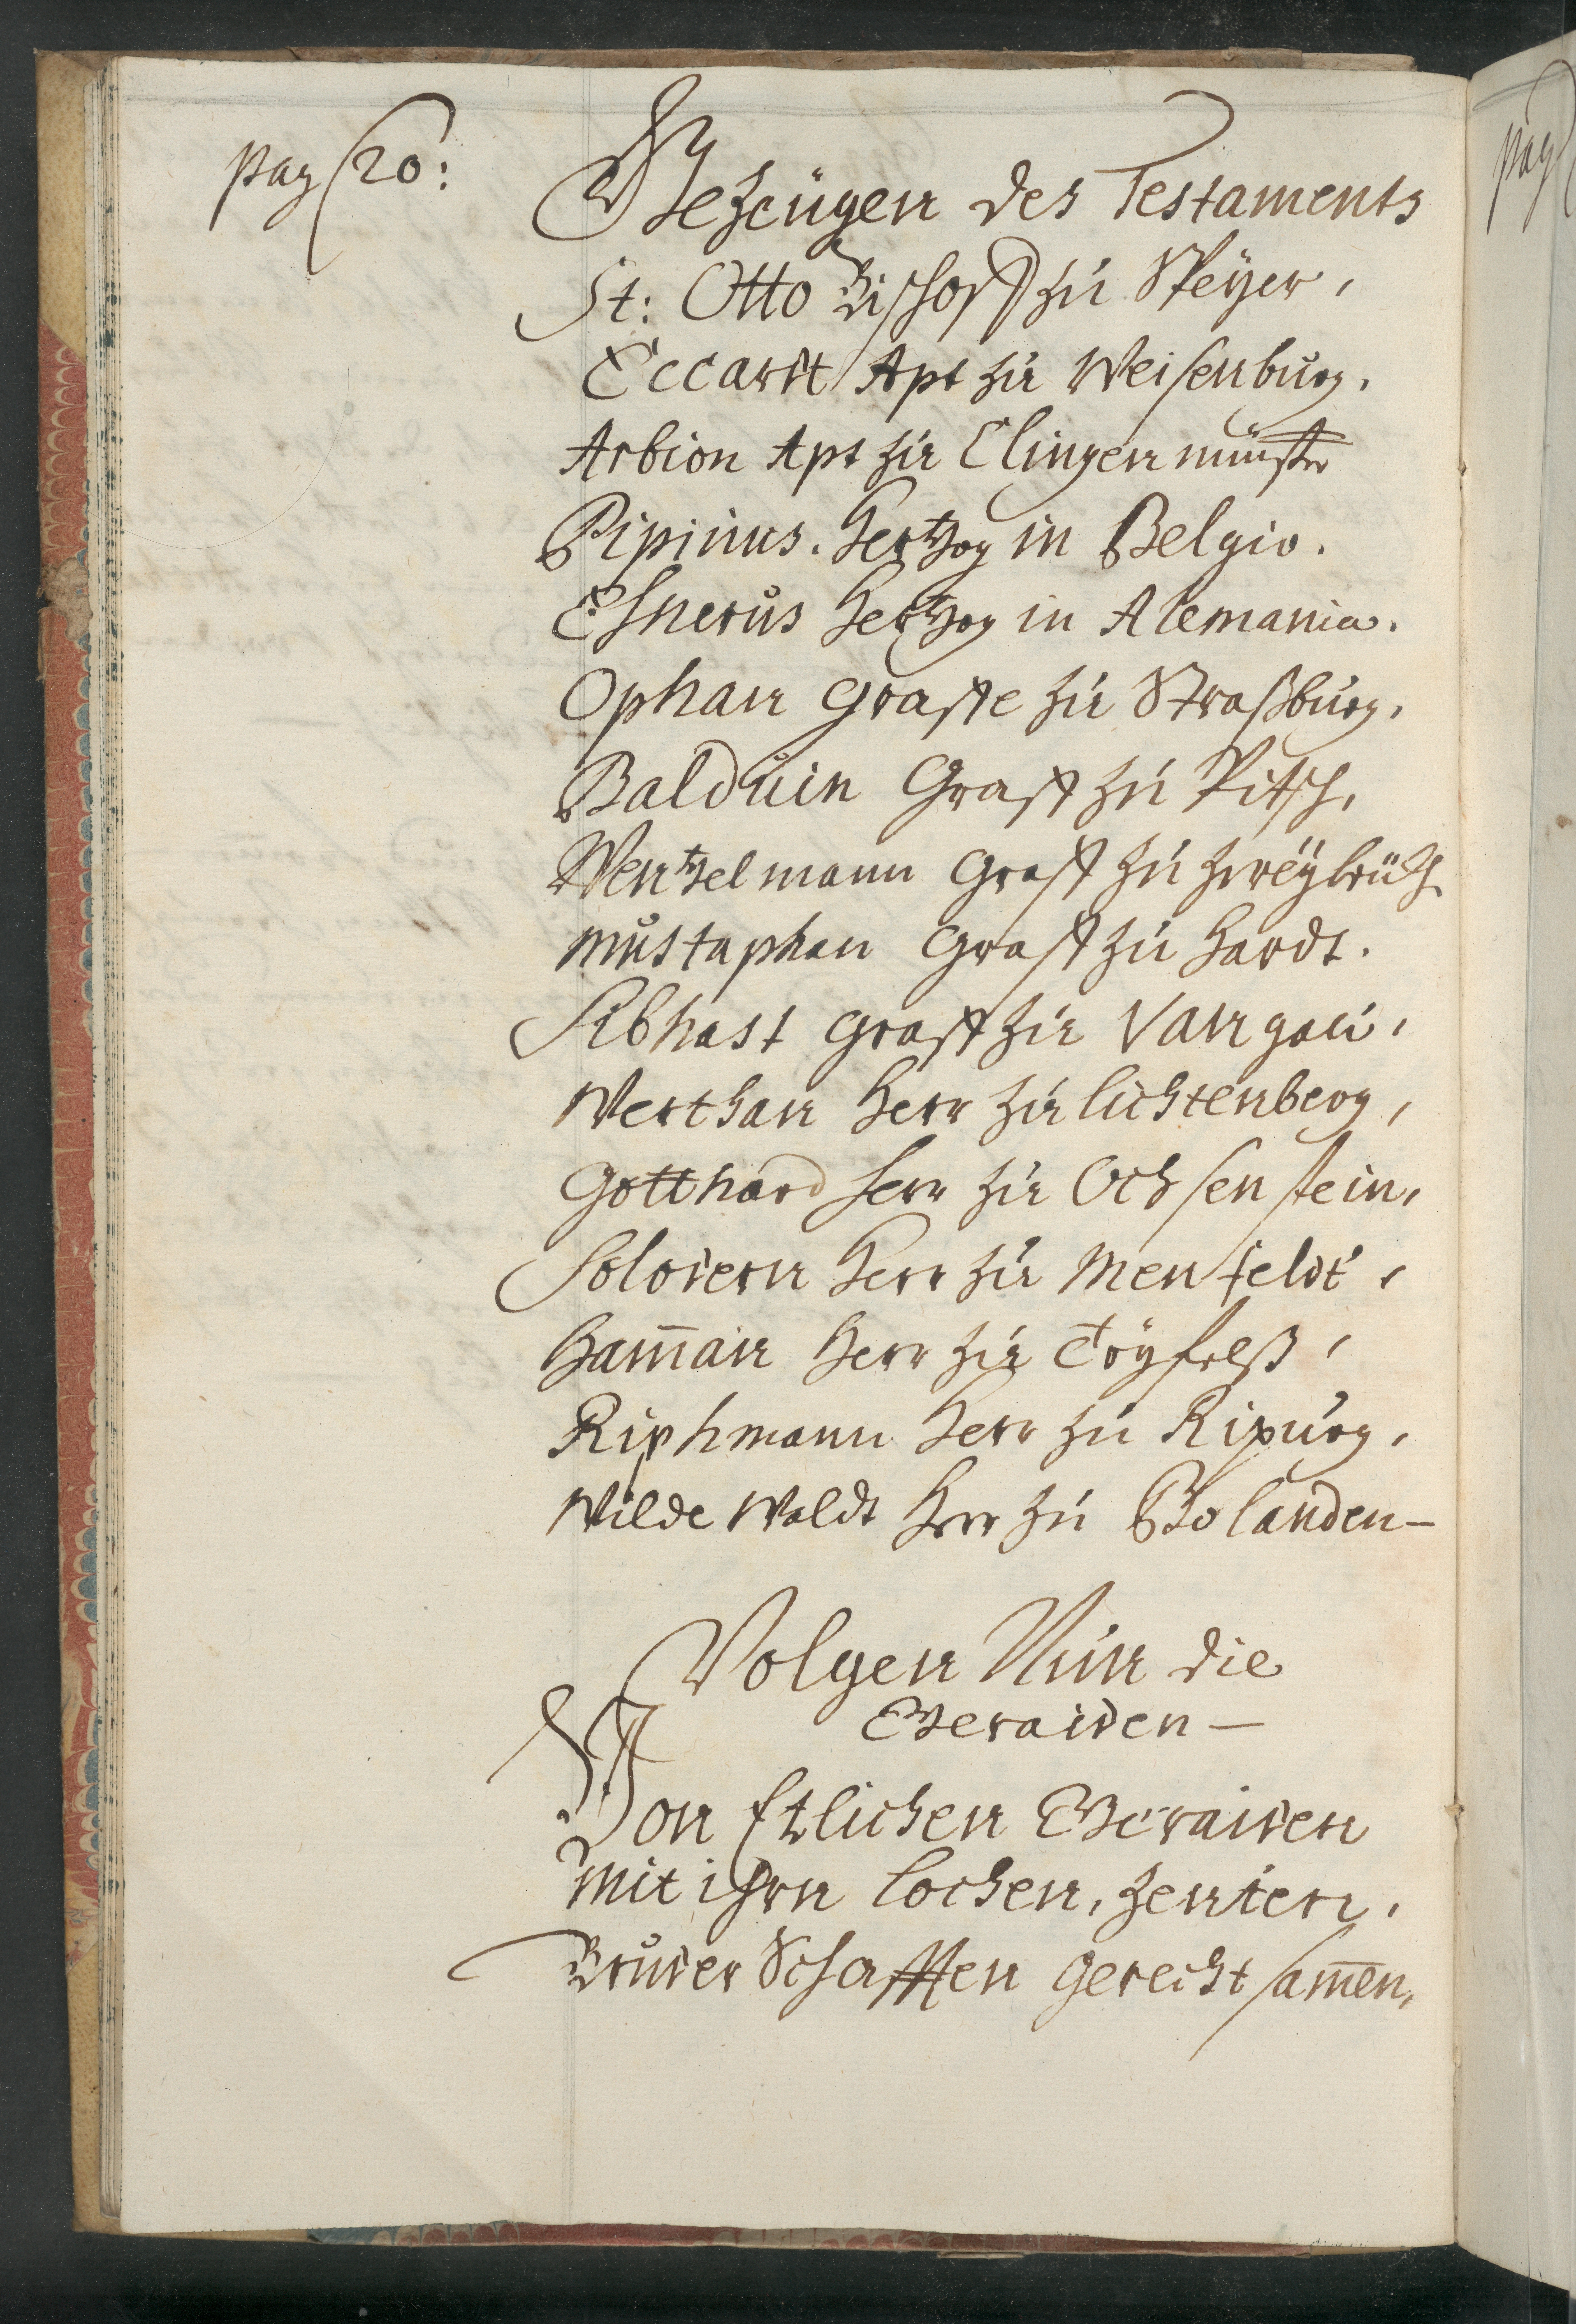 pag 20:
Gezeügen des Testaments
St: Otto Bischoff zu Speÿer,
Eccartt Apt zu Weisenburg.
Arbion Apt zu Clingenmünster
Pipinus. Hertzog in Belgio.
Hertzog in Alemania.
Ophan Graffe zu Straßburg,
Balduin Graff zu Pitsch,
Wentzelmann Graff zu Zweÿbrüch
Mustaphan Graff zu Hardt.
Sibhast Graff zu
Werthan Herr zu Lichtenberg,
Gotthard Herr zu Ochsenstein,
Herr zu Menfeldt,
Ham̄an Herr zu
Riphmann Herr zu Ripurg,
Wilde Waldt Herr zu Bolanden -
Volgen Nun die
Geraiden -
Von Etlichen Geraiden
Mit ihrn Lochen, Zenten,
Bruder Schafften Gerechtsam̄en,